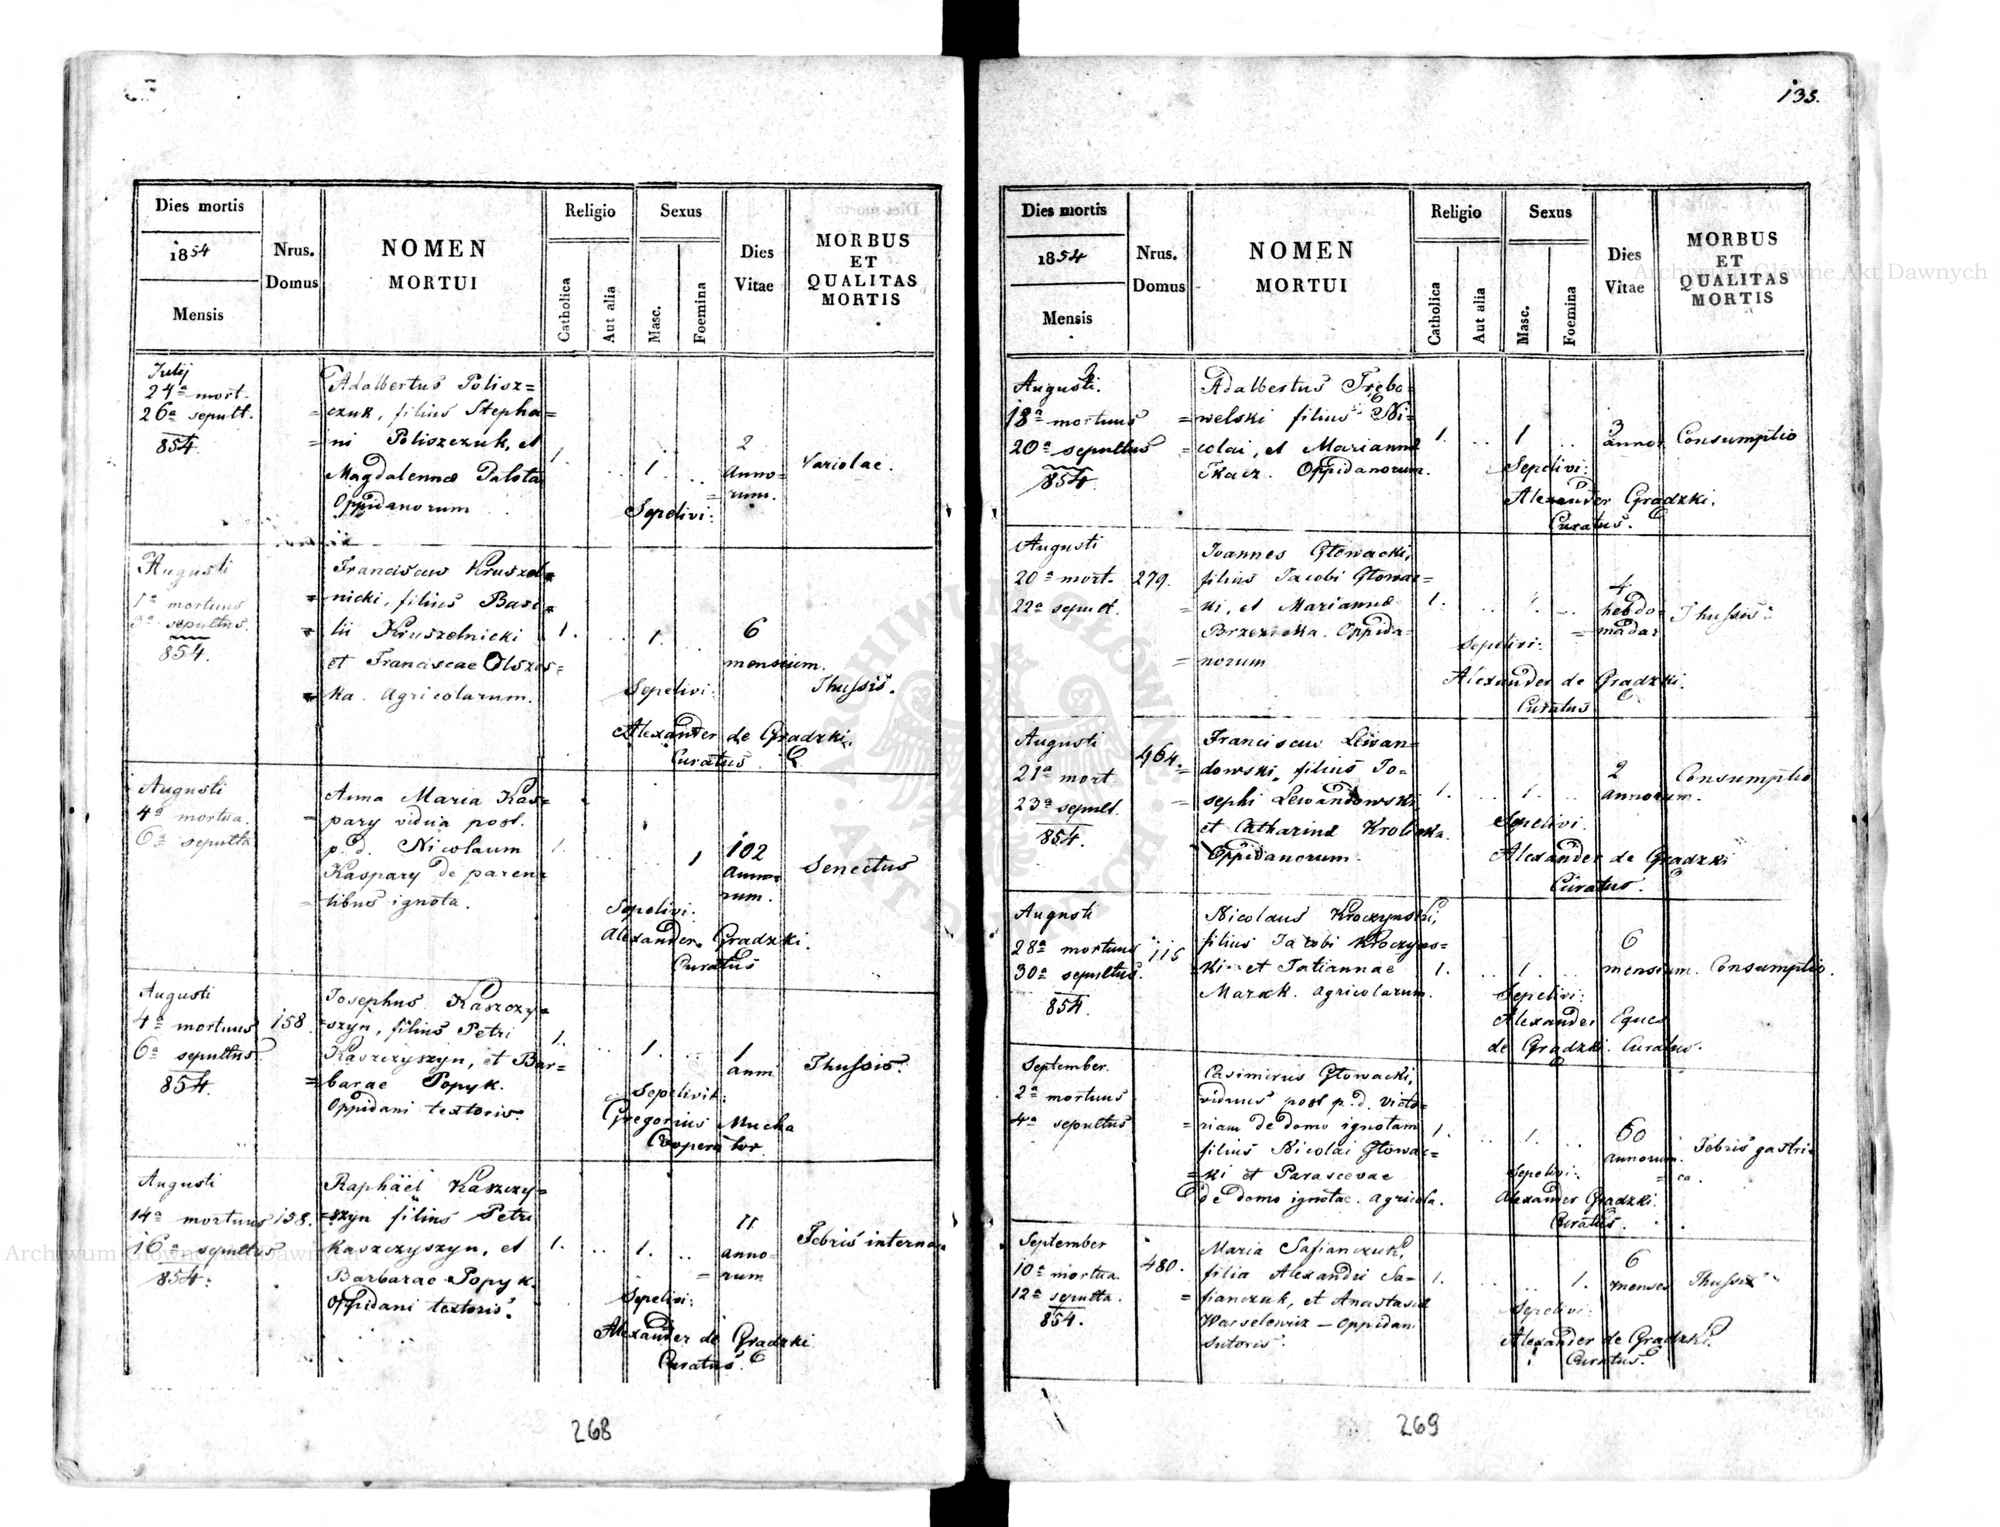 135.
Dies mortis
1854
Mensis
Nrus.
Domus
NOMEN
MORTUI
Religio
Catholica
Aut alia
Sexus
Masc.
Foemina
Dies
Vitae
MORBUS
ET
QUALITAS
MORTIS
Julij
24a mort.
26a sepult.
854.
Adalbertus Polisz=
=czuk, filius Stepha=
=ni Poliszczuk, et
Magdalennae Palota
Oppidanorum
1.
..
1.
..
2
Anno=
=rum.
Variolae.
Sepelivi:
Augusti
1a mortuus
3a sepultus.
854.
Franciscus Kruszel=
=nicki, filius Basi=
=lii Kruszelnicki
et Franciscae Olszes=
=ka. Agricolarum.
1.
..
1.
..
6
mensium.
Thussis.
Sepelivi:
Alexander de Gradzki.
Curatus
Augusti
4a mortua.
6a sepulta
Anna Maria Kas=
=pary vidua post.
p. d. Nicolaum
Kaspary de paren=
=tibus ignota.
1.
..
..
1
102
Anno=
rum.
Senectus
Sepelivi.
Alexander Gradzki.
Curatus
Augusti
4a mortuus
6a sepultus
854.
158
Josephus Kaszczy=
=szyn, filius Petri
Kaszczyszyn, et Bar=
=barae Popyk.
Oppidani textoris.
1.
..
1.
..
1
anni
Thussis.
Sepelivit:
Gregorius Mucha
Coopera tor.
Augusti
14a mortuus
16a sepultus
854.
158.
Raphäel Kaszczy=
=szyn filius Petri
Kaszczyszyn, et
Barbarae Popyk.
Oppidani textoris.
1.
..
1.
..
11
anno=
=rum
Febris interna
Sepelivi:
Alexander de Gradzki
Curatus.
268
Dies mortis
1854
Mensis
Nrus.
Domus
NOMEN
MORTUI
Religio
Catholica
Aut alia
Sexus
Masc.
Foemina
Dies
Vitae
MORBUS
ET
QUALITAS
MORTIS
Augusti.
18a mortuus
20a sepultus
854.
Adalbertus Trębo=
=welski filius Ni=
=colai, et Mariannae
Tkacz. Oppidanorum.
1.
..
1
..
3
annor
Consumptio
Sepelivi:
Alexander Gradzki.
Curatus.
Augusti
20a mort.
22a sepult.
279.
Joannes Głowacki,
filius Jacobi Głowac=
=ki, et Mariannae
Brzezicka. Oppida=
=norum
1.
..
1.
..
4
hebdo=
=madar
Thussis.
Sepelivi:
Alexander de Gradzki.
Curatus
Augusti
21a mort
23a sepult.
854.
464.
Franciscus Lewan=
=dowski, filius Jo=
=sephi Lewandowski
et Catharinae Krolicka.
Oppidanorum.
1.
..
1.
..
2
annorum.
Consumptio
Sepelivi.
Alexander de Gradzki
Curatus.
Augusti
28a mortuus
30a sepultus.
854.
115
Nicolaus Kroczynski,
filius Jacobi Kroczyns=
=ki et Tatiannae
Marak. Agricolarum.
1.
..
1.
..
6
mensium.
Consumptio.
Sepelivi:
Alexander Eques
de Gradzki. Curatus.
September.
2a mortuus
4a sepultus
Casimirus Głowacki,
viduus post p. d. Victo=
=riam de domo ignotam
filius Nicolai Głowac=
=ki et Parascevae
de domo ignotae. Agricola.
1.
..
1.
..
60
annorum.
Febris gastri=
=ca.
Sepelivi:
Alexander Gradzki.
Curatus.
September
10a mortua.
12a sepulta.
854.
480.
Maria Safianczuk,
filia Alexandri Sa=
=fianczuk, et Anastasiae
Warselewicz – Oppidani
Sutoris.
1.
..
..
1.
6
menses
Thussis
Sepelivi:
Alexander de Gradzki.
Curatus.
269
Archiwum Główne Akt Dawnych
Archiwum Główne Akt Dawnych